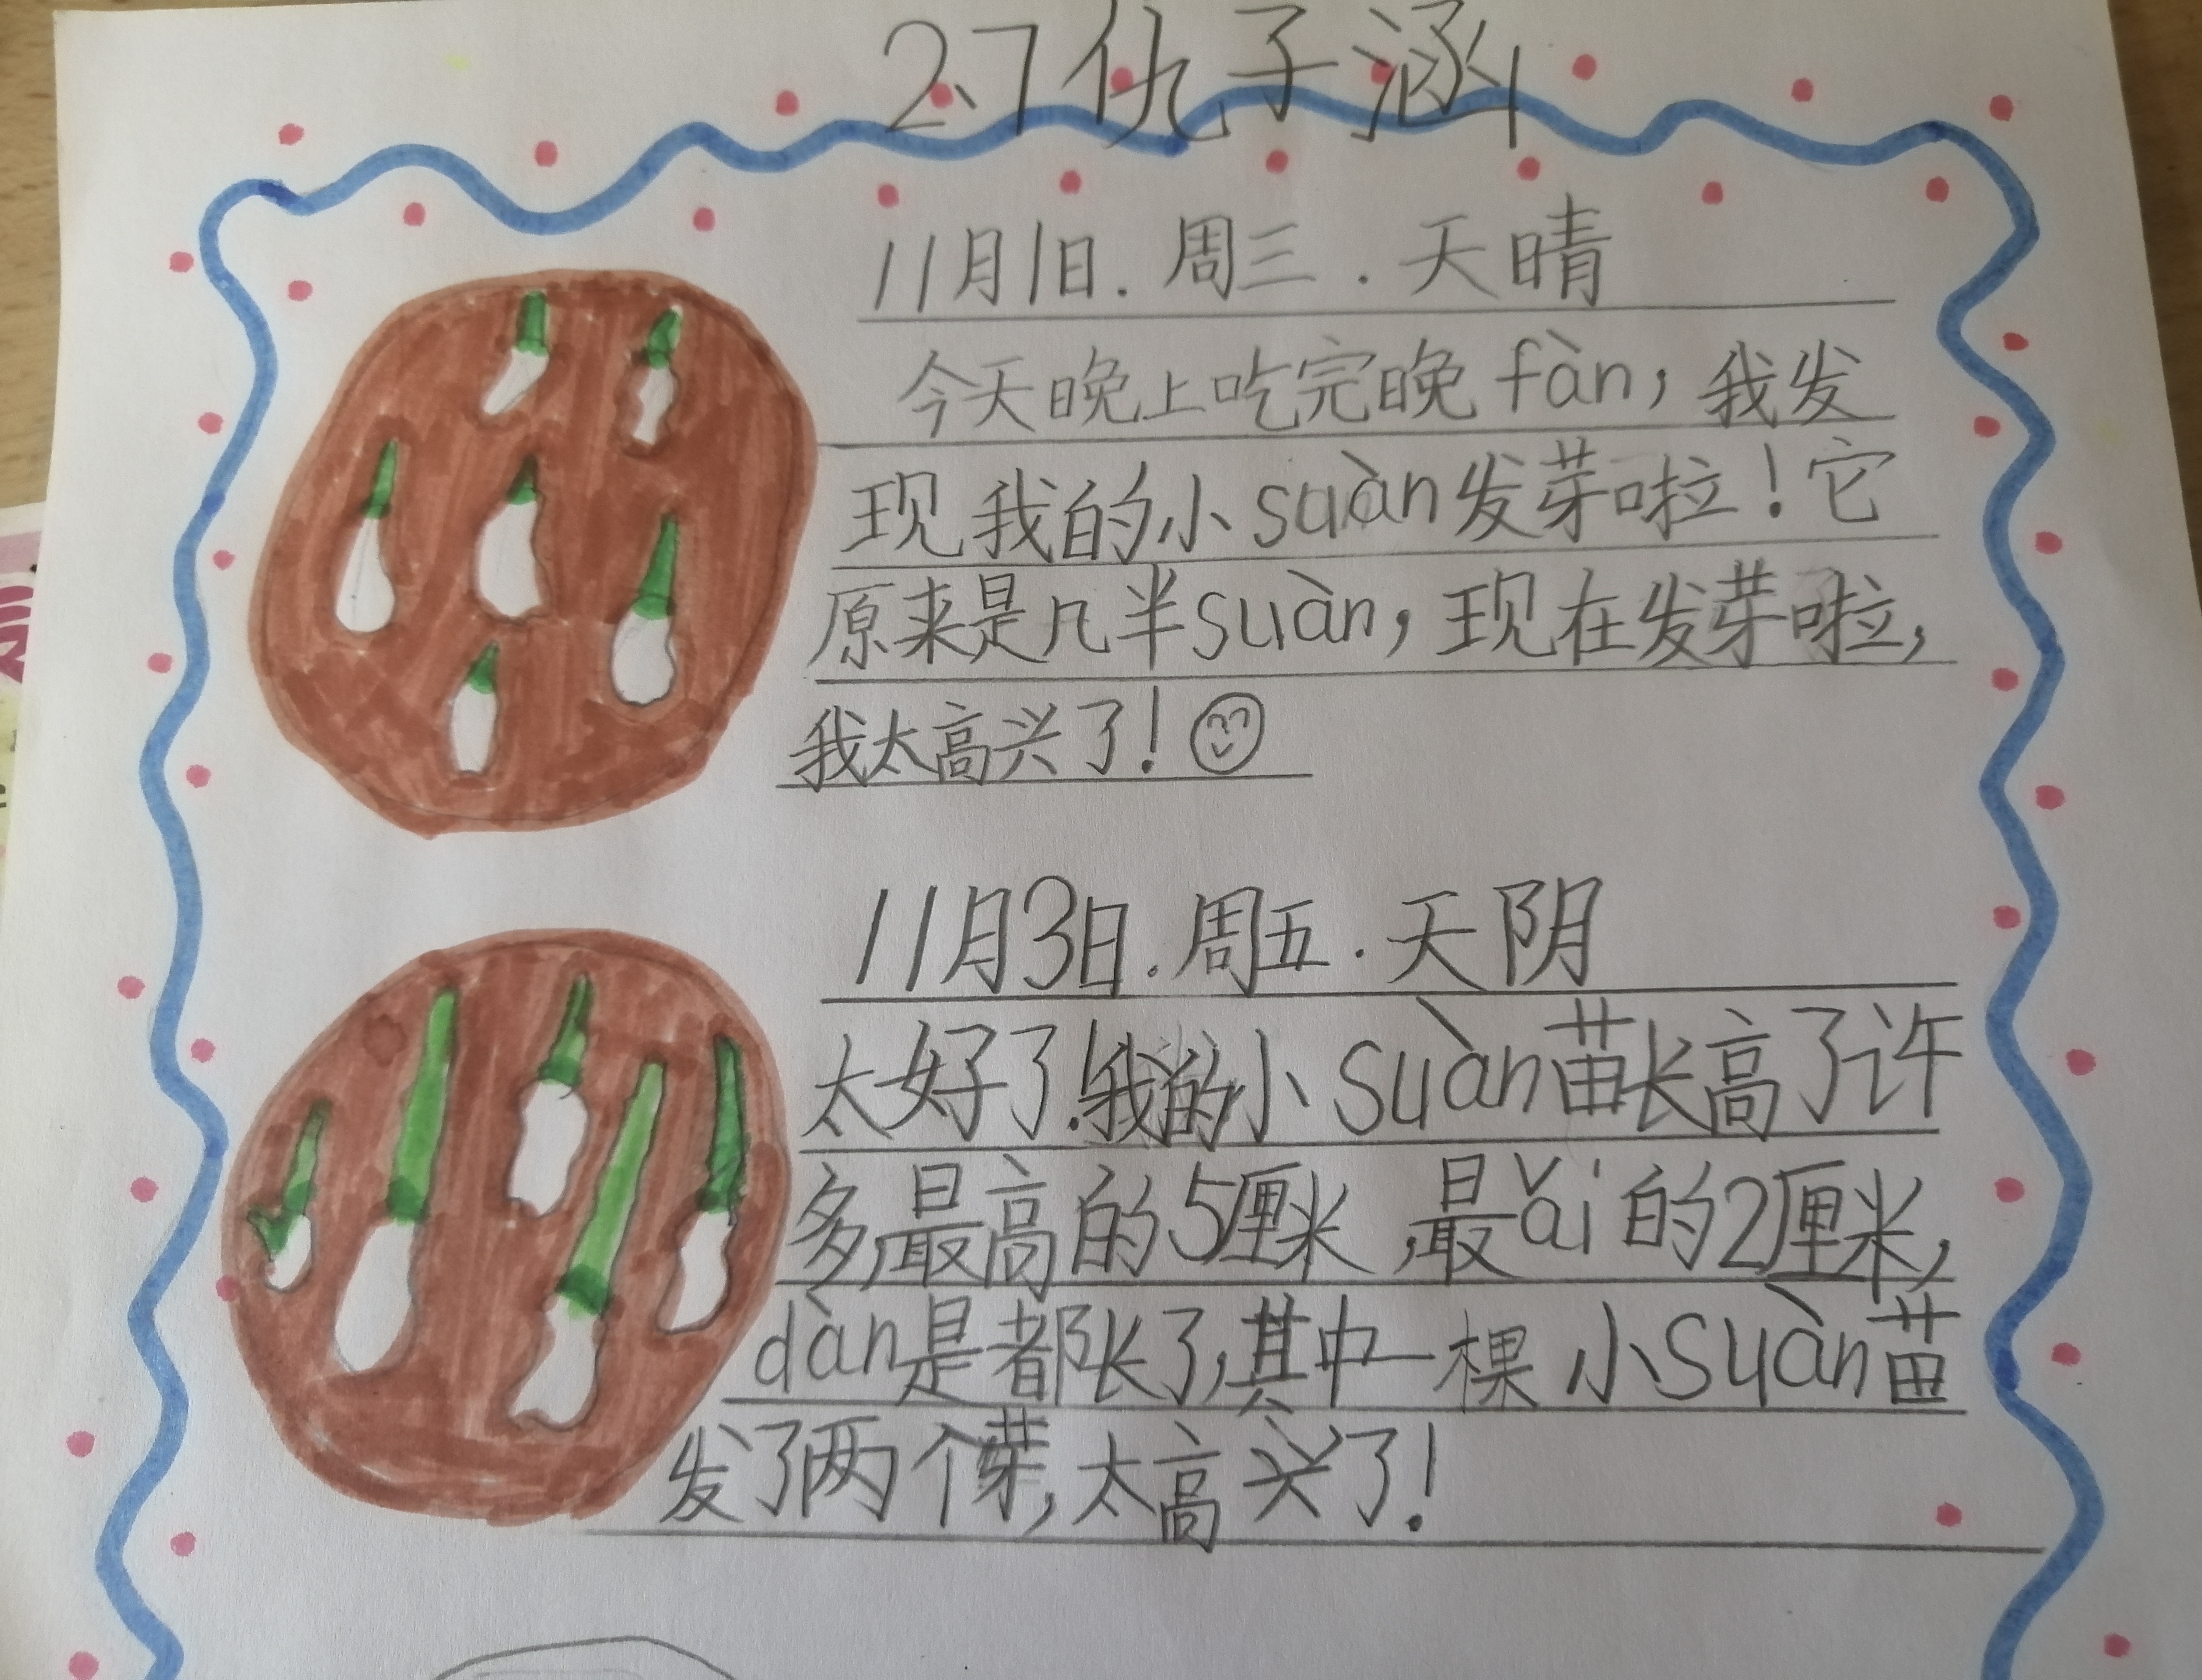 2.7仇子涵
11月1日.周三.天晴
今天晚上吃完晚fàn，我发
现我的小suàn发芽啦！它
原来是几半suàn，现在发芽啦，
我太高兴了！
11月3日.周五.天阴
太好了！我的小suàn苗长高了许
多，最高的5厘米，最ǎi的2厘米，
dàn是都长了，其中一棵小suàn苗
发了两个芽，太高兴了！